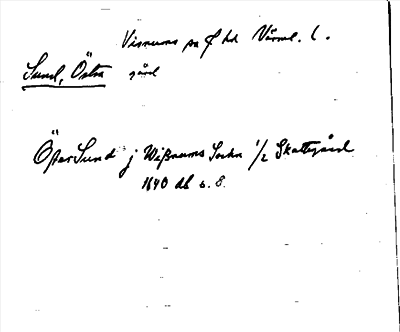 Visnums sn Ø hd Värml. l.
Sund, Östra gård
Öster Sund j Wißnums Sockn 1/2 Skattegård
1640 db s. 8.